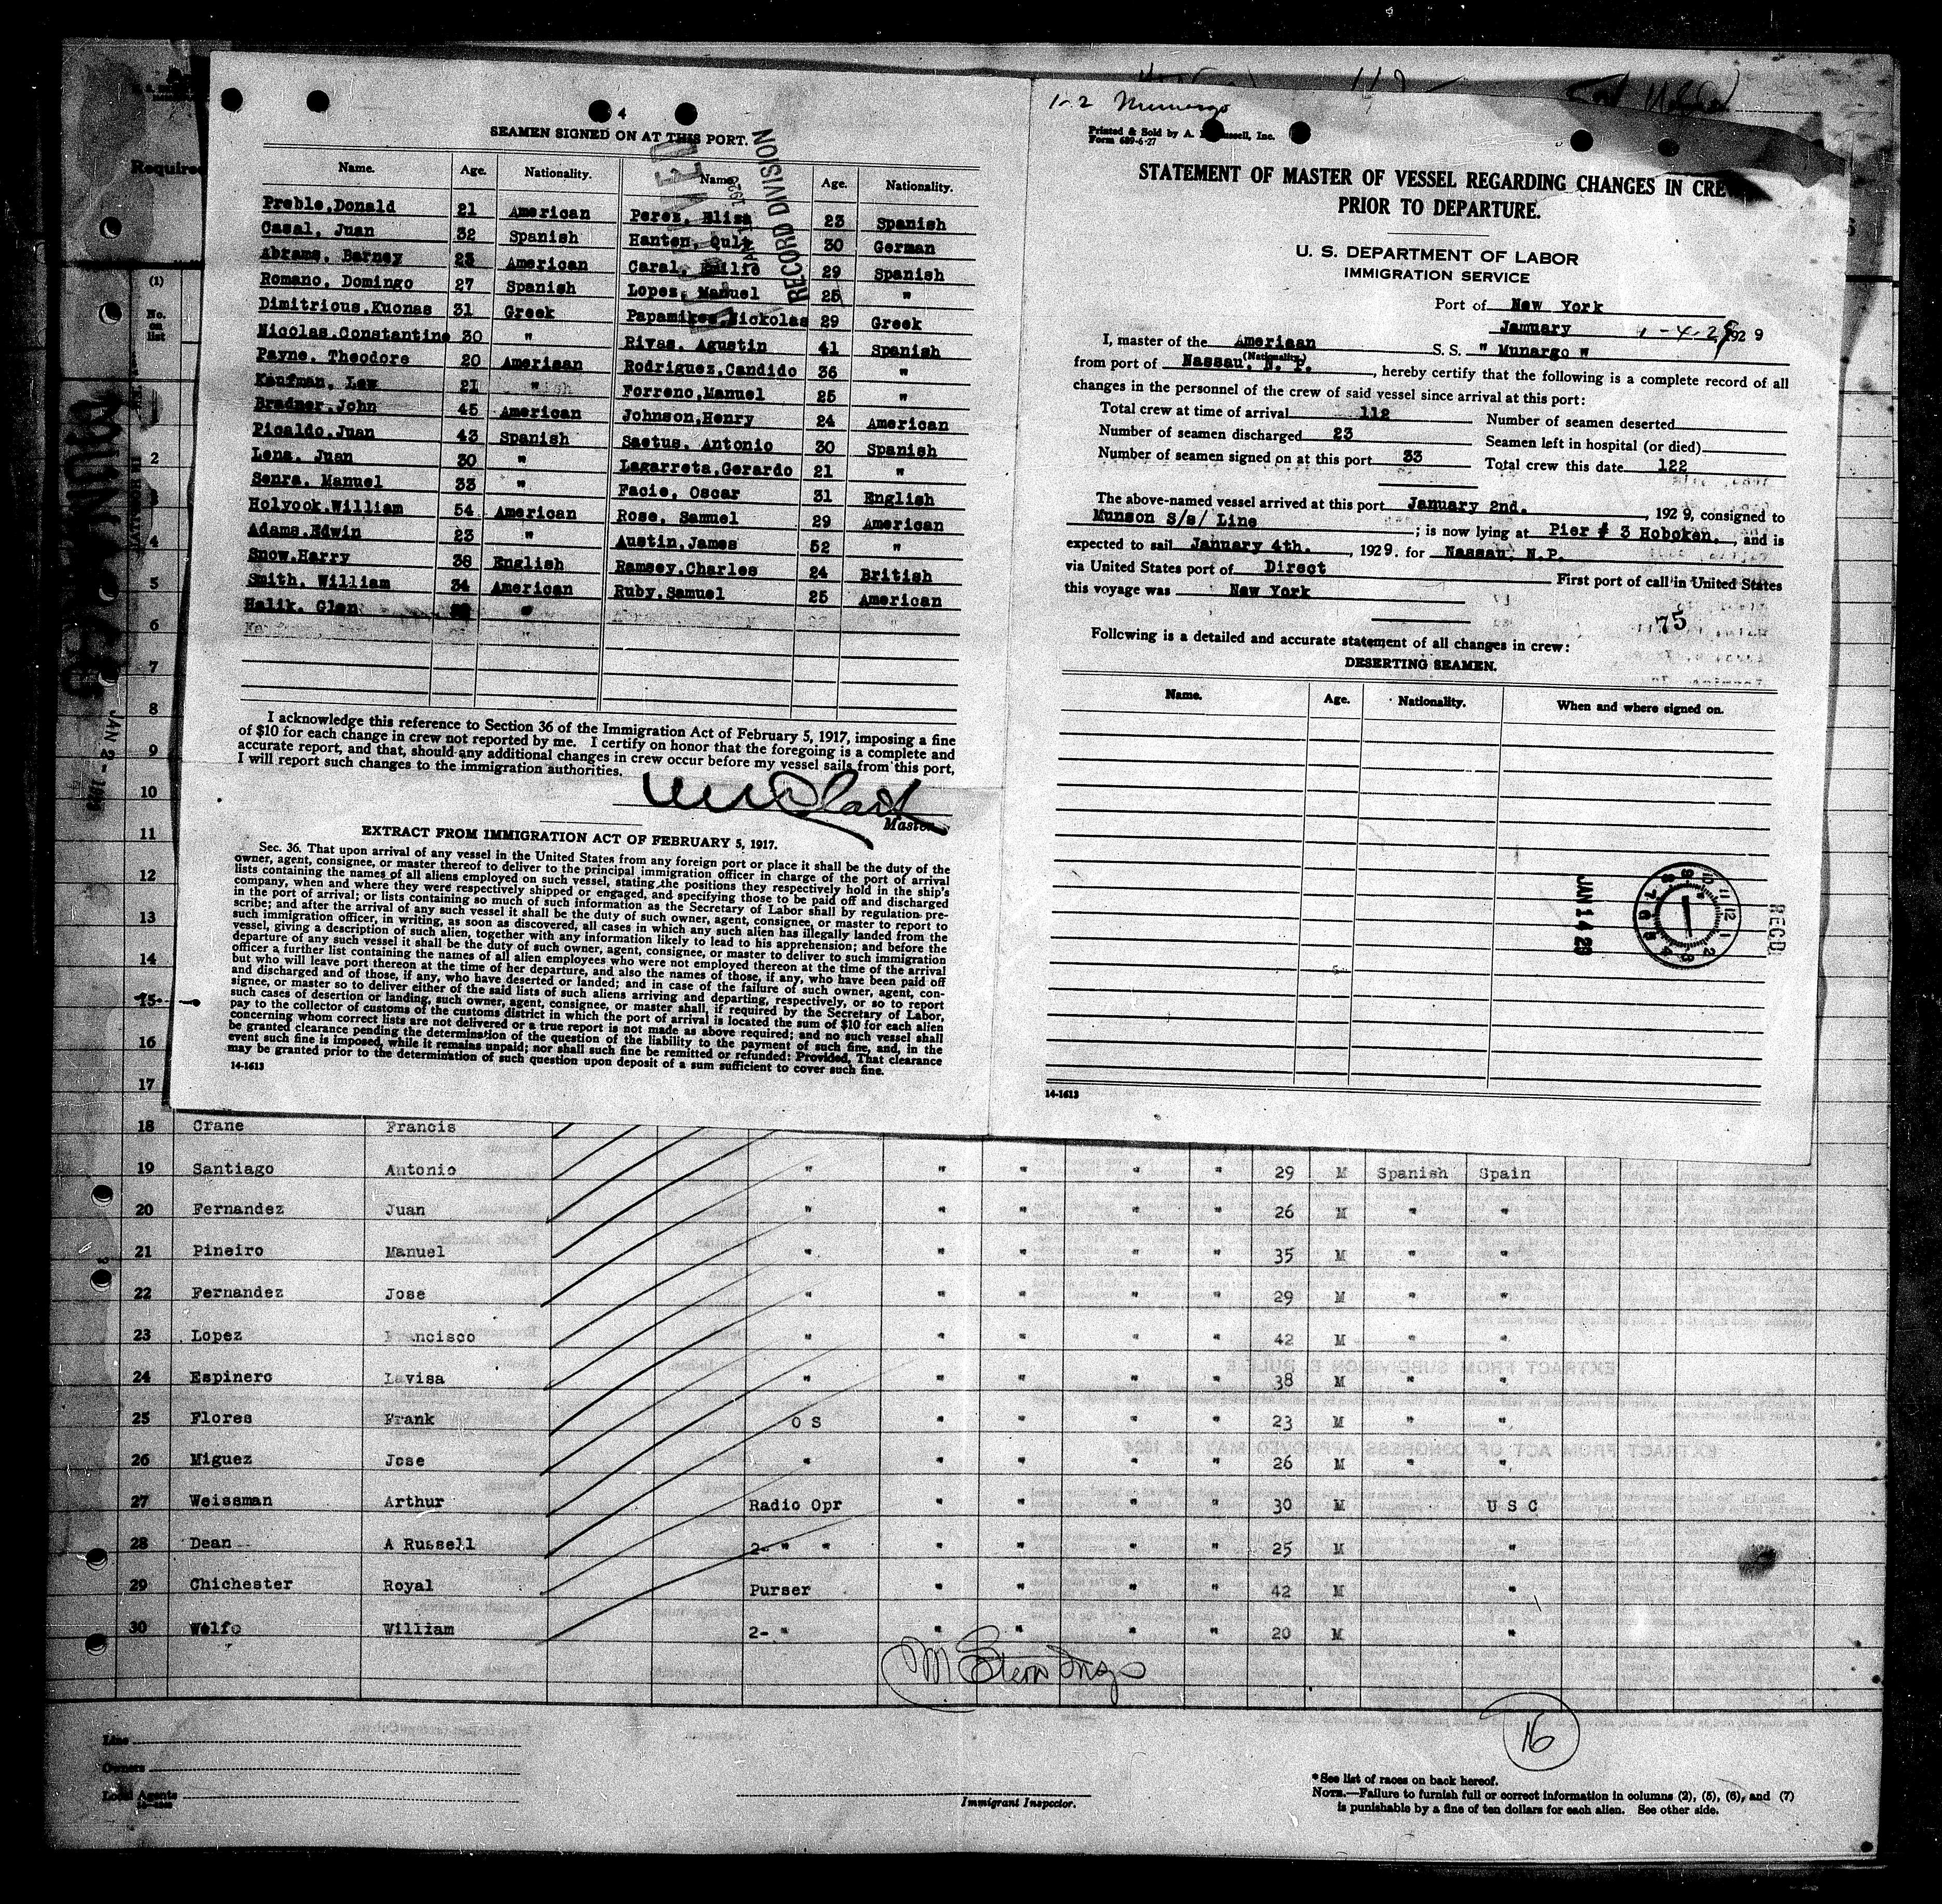 4
SEAMEN SIGNED ON AT THIS PORT.
Name. Age. Nationality. Name. Age. Nationality.
Preble,Donald 21 American Perez, Elisa 23 Spanish
Casal, Juan 32 Spanish Hanten, 30 German
Abrams, Barney 23 American Caral, Emilio 29 Spanish
Romano, Domingo 27 Spanish Lopez, Manuel 25 "
Dimitrious,Kuonas 31 Greek Papamikes,Nickolas 29 Greek
Nicolas,Constantine 30 " Rivas, Agustin 41 Spanish
Payne, Theodore 20 American Rodriguez,Candido 36 "
Kaufman, Lew 21 " Forreno,Manuel 25 "
Bradner,John 45 American Johnson,Henry 24 American
Picaldo,Juan 43 Spanish Saetus, Antonio 30 Spanish
Lena, Juan 30 " Lagarreta,Gerardo 21 "
Senra, Manuel 33 " Facie, Oscar 31 English
Holyook,William 54 American Rose, Samuel 29 American
Adams,Edwin 23 " Austin,James 52 "
Snow,Harry 38 English Ramsey,Charles 24 British
Smith, William 34 American Ruby,Samuel 25 American
Halik, Glen "
RECORD DIVISION
I acknowledge this reference to Section 36 of the Immigration Act of February 5, 1917, imposing a fine
of $10 for each change in crew not reported by me. I certify on honor that the foregoing is a complete and
accurate report, and that, should any additional changes in crew occur before my vessel sails from this port,
I will report such changes to the immigration authorities.
Master.
EXTRACT FROM IMMIGRATION ACT OF FEBRUARY 5, 1917.
Sec. 36. That upon arrival of any vessel in the United States from any foreign port or place it shall be the duty of the
owner, agent, consignee, or master thereof to deliver to the principal immigration officer in charge of the port of arrival
lists containing the names of all aliens employed on such vessel, stating the positions they respectively hold in the ship's
company, when and where they were respectively shipped or engaged, and specifying those to be paid off and discharged
in the port of arrival; or lists containing so much of such information as the Secretary of Labor shall by regulation pre-
scribe; and after the arrival of any such vessel it shall be the duty of such owner, agent, consignee, or master to report to
such immigration officer, in writing, as soon as discovered, all cases in which any such alien has illegally landed from the
vessel, giving a description of such alien, together with any information likely to lead to his apprehension; and before the
departure of any such vessel it shall be the duty of such owner, agent, consignee, or master to deliver to such immigration
officer a further list containing the names of all alien employees who were not employed thereon at the time of the arrival
but who will leave port thereon at the time of her departure, and also the names of those, if any, who have been paid off
and discharged and of those, if any, who have deserted or landed; and in case of the failure of such owner, agent, con-
signee, or master so to deliver either of the said lists of such aliens arriving and departing, respectively, or so to report
such cases of desertion or landing, such owner, agent, consignee, or master shall, if required by the Secretary of Labor,
pay to the collector of customs of the customs district in which the port of arrival is located the sum of $10 for each alien
concerning whom correct lists are not delivered or a true report is not made as above required; and no such vessel shall
be granted clearance pending the determination of the question of the liability to the payment of such fine, and, in the
event such fine is imposed, while it remains unpaid; nor shall such fine be remitted or refunded: Provided, That clearance
may be granted prior to the determination of such question upon deposit of a sum sufficient to cover such fine.
14-1613
1-2 Munargo
Printed & Sold by A. Inc.
Form 689-6-27
STATEMENT OF MASTER OF VESSEL REGARDING CHANGES IN CREW
PRIOR TO DEPARTURE.
U. S. DEPARTMENT OF LABOR
IMMIGRATION SERVICE
Port of New York
January 1-4-29 1929
I, master of the American S. S. " Munargo "
(Nationality)
from port of Nassau, N. P. , hereby certify that the following is a complete record of all
changes in the personnel of the crew of said vessel since arrival at this port:
Total crew at time of arrival 112 Number of seamen deserted
Number of seamen discharged 23 Seamen left in hospital (or died)
Number of seamen signed on at this port 33 Total crew this date 122
The above-named vessel arrived at this port January 2nd. , 1929, consigned to
Munson S/s/ Line ; is now lying at Pier # 3 Hoboken. , and is
expected to sail January 4th. , 1929. for Nassau, N.P.
via United States port of Direct First port of call in United States
this voyage was New York
75
Following is a detailed and accurate statement of all changes in crew:
DESERTING SEAMEN.
Name. Age. Nationality. When and where signed on.
JAN 14 29
RECD
14-1613
Required
(1)
No. on list
JAN 2 -
2
3
4
5
6
7
8
9
10
11
12
13
14
15
16
17
18 Crane Francis
19 Santiago Antonio " " " " " 29 M Spanish Spain
20 Fernandez Juan " " " " " 26 M " "
21 Pineiro Manuel " " " " " 35 M " "
22 Fernandez Jose " " " " " 29 M " "
23 Lopez Francisco " " " " " 42 M " "
24 Espinero Lavisa " " " " " 38 M " "
25 Flores Frank O S " " " " 23 M " "
26 Miguez Jose " " " " " 26 M " "
27 Weissman Arthur Radio Opr " " " " 30 M U S C
28 Dean A Russell 2- " " " " " " 25 M "
29 Chichester Royal Purser " " " " 42 M "
30 Wolfe William 2- " " " " " 20 M "
16
Line
Owners
Local Agents
Immigrant Inspector.
*See list of races on back hereof.
NOTE.—Failure to furnish full or correct information in columns (2), (5), (6), and (7)
is punishable by a fine of ten dollars for each alien. See other side.